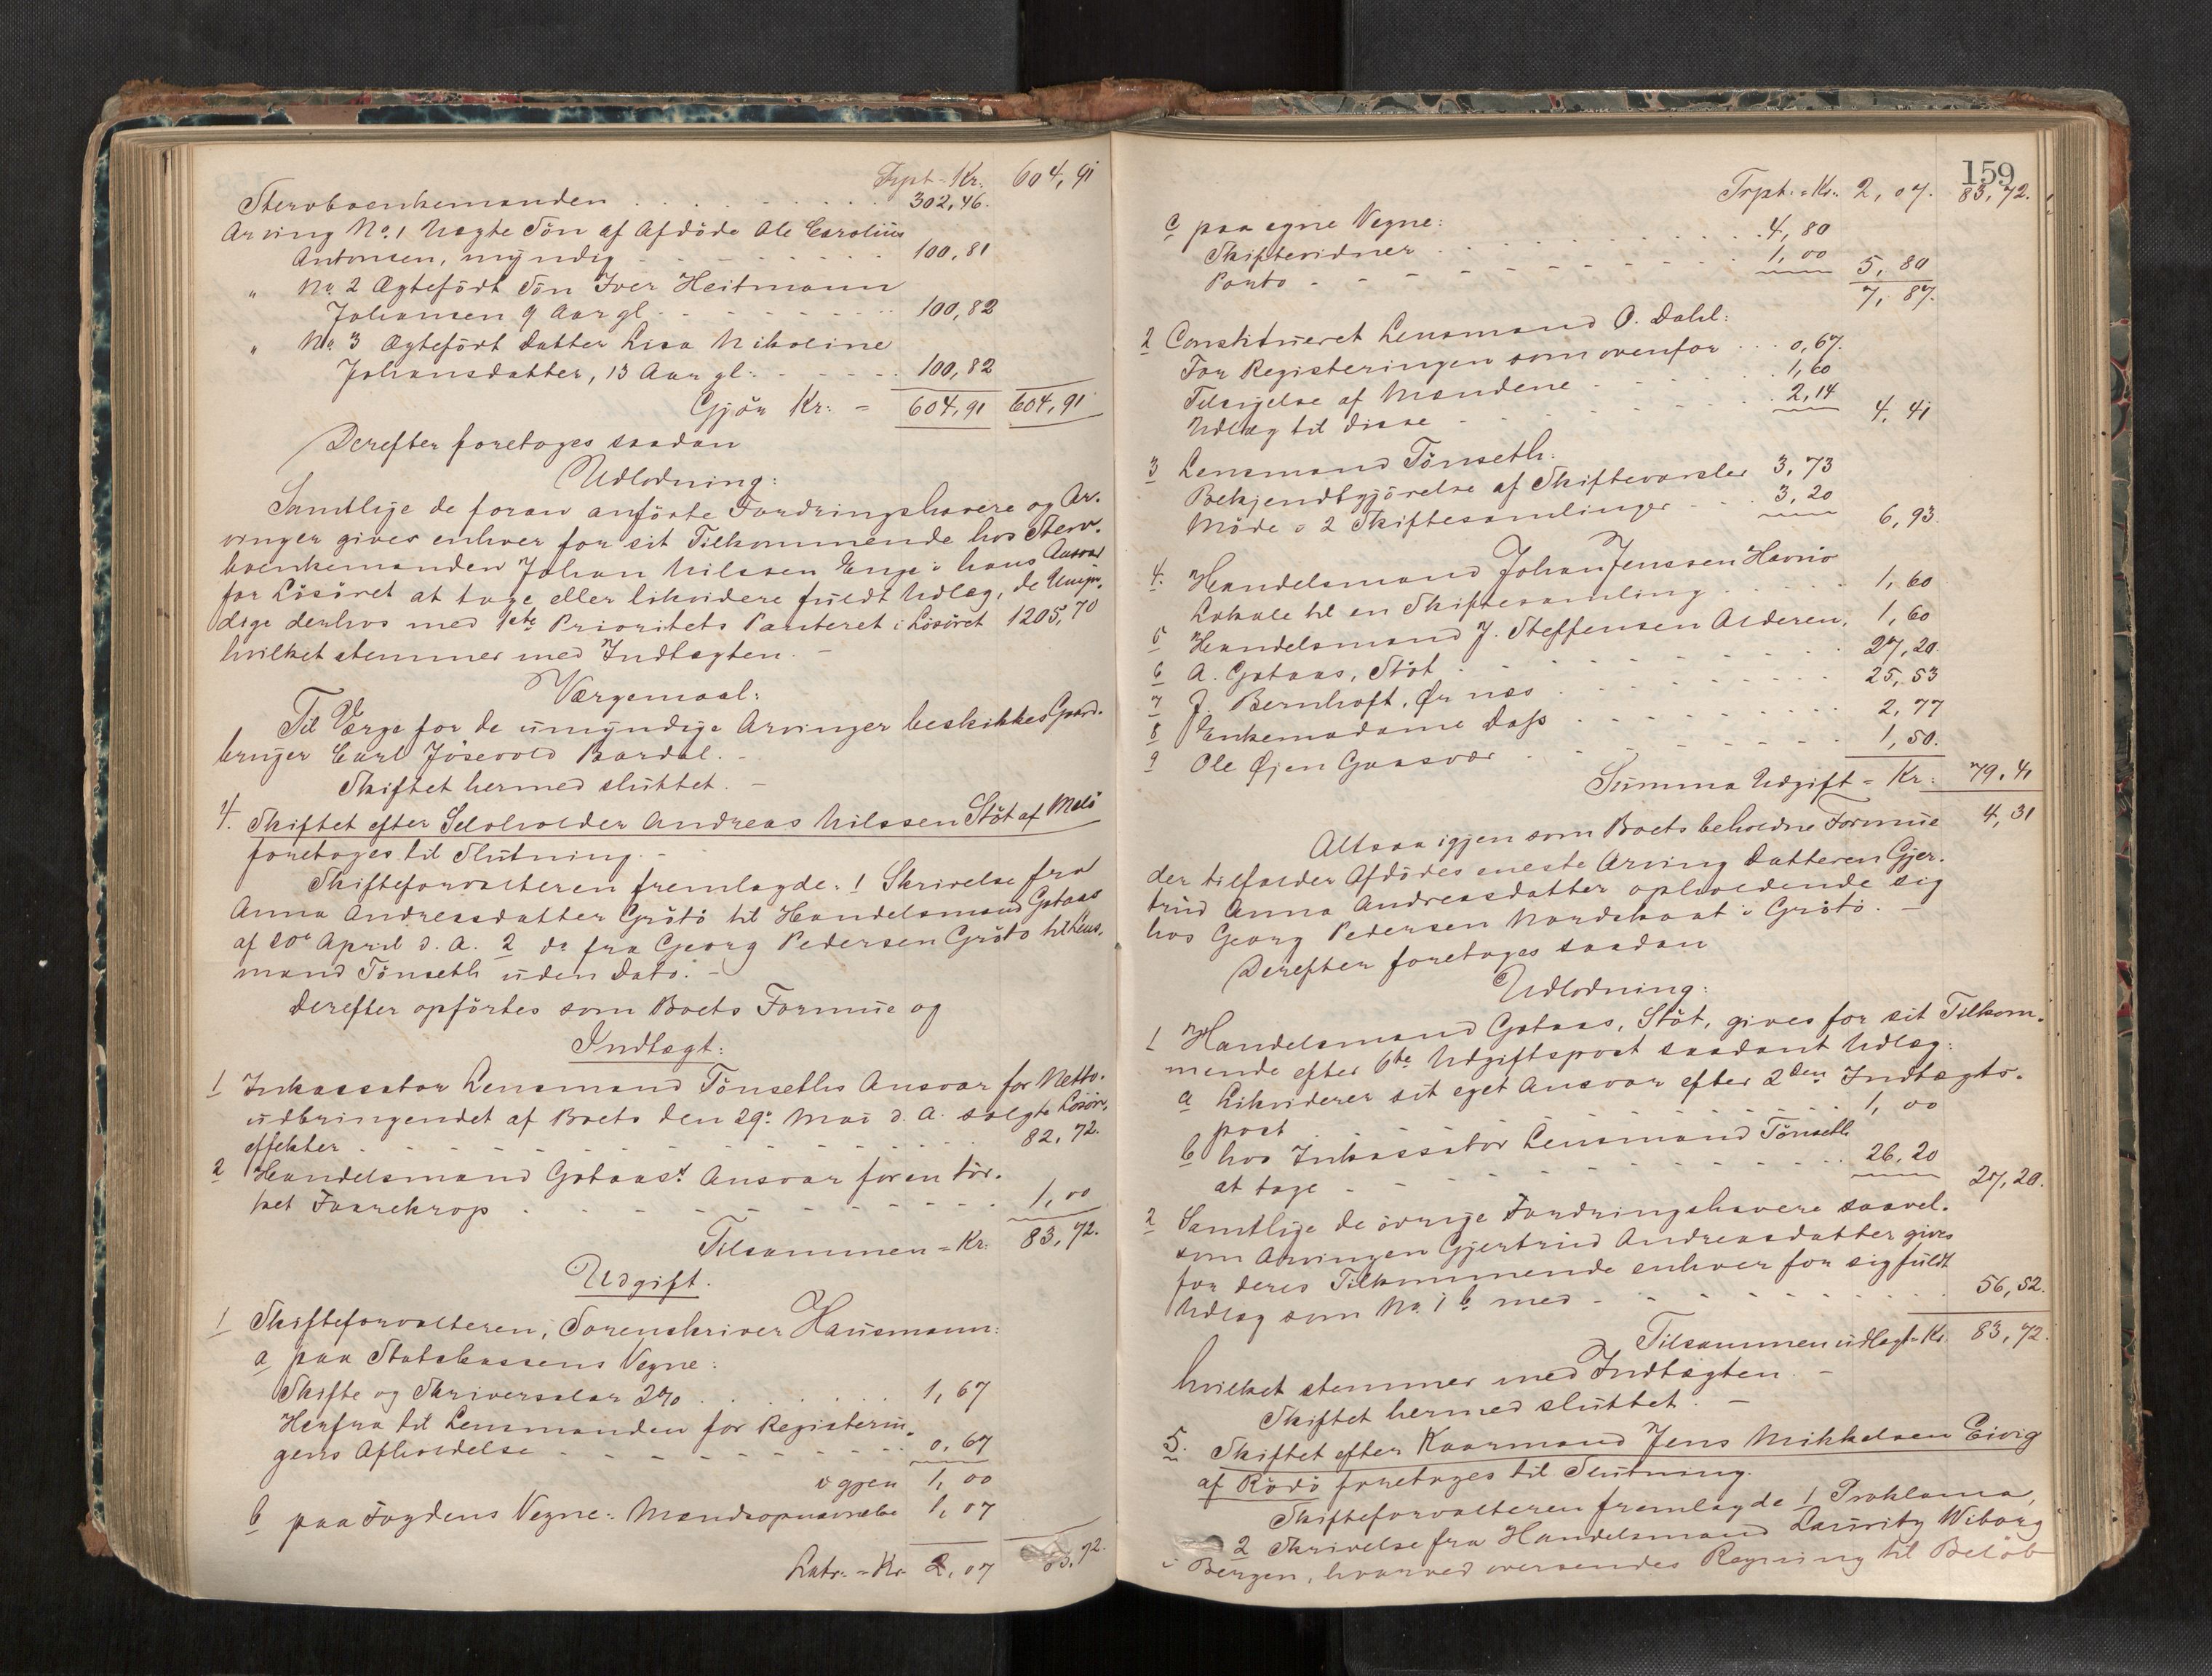 Trpt - Kr. 604,91
Stervboenkemanden . . . . . . . . 302,46.
Arving No. 1 Uægte Sön af Afdöde Ole Carolius
Antonsen, myndig - - - - - - - - 100,81
" No. 2 Ægtefödt Sön Iver Heitmann
Johansen 9 Aar gl. - - - - - - - 100,82
" No. 3 Ægtefödt Datter Lisa Nikoline
Johansdatter, 13 Aar gl: - - - - - 100,82
Gjör Kr: = 604,91 604,91
Derefter foretoges saadan
Udlodning:
Samtlige de foran anförte Fordringshavere og Ar-
vinger gives enhver for sit Tilkommende hos Sterv-
boenkemanden Johan Nilssen Enge i hans Ansvar
for Lösöret at tage eller likvidere fuldt Udlæg, de Umyn-
dige derhos med 1ste Prioritets Panteret i Lösöret 1205,70
hvilket stemmer med Indtægten. -
Værgemaal:
Til Værge for de umyndige Arvinger beskikkes Gaard-
bruger Carl Jösevold Bardal. -
Skiftet hermed sluttet. -
4. Skiftet efter Selvholder Andreas Nilssen Stöt af Melö
foretoges til Slutning. -
Skifteforvalteren fremlagde: 1 Skrivelse fra
Anna Andreasdatter Grötö til Handelsmand Gotaas
af 20de April d. A. 2 do fra Georg Pedersen Grötö til Lens-
mand Tönseth uden Dato. -
Derefter opförtes som Boets Formue og
Indtægt:
1 Inkassator Lensmand Tönseths Ansvar for Netto-
udbringendet af Boets den 29de Mai d. A. solgte Lösöre-
effekter . . . . . . . . . . 82,72.
2 Handelsmand Gotaas's Ansvar for en tör-
ket Faarekrop . . . . . . . . 1,00
Tilsammen = Kr. 83,72.
Udgift.
1 Skifteforvalteren, Sorenskriver Hausmann:
a paa Statskassens Vegne:
Skifte og Skriversalær 2% . . . . . . 1,67
Herfra til Lensmanden for Registerin-
gens Afholdelse - - - - - - - 0,67
igjen 1,00
b paa Fogdens Vegne: Mandsopnævnelse 1,07
Latr. = Kr. 2,07 83,72.
159
Trpt. = Kr. 2,07. 83,72.
c paa egne Vegne:
Skiftevidner . . . . . . . . 4,80
Porto - - - - - - - - 1,00 5,80
7,87.
2 Constitueret Lensmand O. Dahl:
For Registeringen som ovenfor . . . 0,67.
Tilsigelse af Mændene - - - - - 1,60
Udlæg til disse - - - - - - 2,14 4,41
3 Lensmand Tönseth:
Bekjendtgjörelse af Skiftevarsler 3,73
Möde i 2 Skiftesamlinger - - - 3,20 6,93.
4. Handelsmand Johan Jenssen Havnö
Lokale til en Skiftesamling . . . . . 1,60
5 Handelsmand J. Steffensen Alderen, 1,60
6 A. Gotaas, Stöt . - - - - - - 27,20.
7 J. Bernhoft, Ørnæs . . . . . . . 25,53
8 Enkemadame Dass . . . . . . . 2,77
9 Ole Øjen Gaasvær . - - - - - - 1,50.
Summa Udgift = Kr: 79,41
Altsaa igjen som Boets beholdne Formue 4,31
der tilfalder Afdödes eneste Arving Datteren Gjer-
trud Anna Andreasdatter opholdende sig
hos Georg Pedersen Nordskaat i Grötö. -
Derefter foretoges saadan
Udlodning:
1 Handelsmand Gotaas, Stöt, gives for sit Tilkom-
mende efter 6te Udgiftspost saadant Udlæg:
a Likviderer sit eget Ansvar efter 2den Indtægts-
post . . . . . . . . . . 1,00
b hos Inkassator Lensmand Tönseth
at tage - - - - - - - - 26,20 27,20.
2 Samtlige de övrige Fordringshavere saavel-
som Arvingen Gjertrud Andreasdatter gives
for deres Tilkommende enhver for sig fuldt
Udlæg som No. 1 b med - - - - - - - 56,52.
Tilsammen udlagt = Kr. 83,72.
hvilket stemmer med Indtægten. -
Skiftet hermed sluttet. -
5. Skiftet efter Kaarmand Jens Mikkelsen Eivig
af Rödö foretoges til Slutning.
Skifteforvalteren fremlagde 1 Proklama,
2 Skrivelse fra Handelsmand Lauritz Wiborg
i Bergen, hvorved oversendes Regning til Belöb